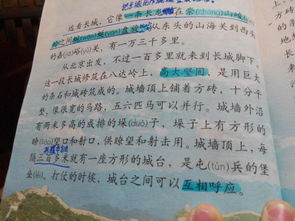 远看长城,它像一条长龙,在崇(chóng)山峻岭
之间蜿(wān)蜒(yán)盘旋。从东头的山海关到西头
的嘉峪(yù)关,有一万三千多里。
从北京出发,不过一百多里就来到长城脚下
这一段长城修筑在八达岭上,高大坚固,是用巨大
的条石和城砖筑成的。城墙顶上铺着方砖,十分平
整,像很宽的马路,五六匹马可以并行。城墙外沿
有两米多高的成排的垛(duǒ)子,垛子上有方形的
瞭望口和射口,供瞭望和射击用。城墙顶上,每
隔三百多米就有一座方形的城台,是屯(tún)兵的堡
垒(lěi)。打仗的时候,城台之间可以互相呼应。